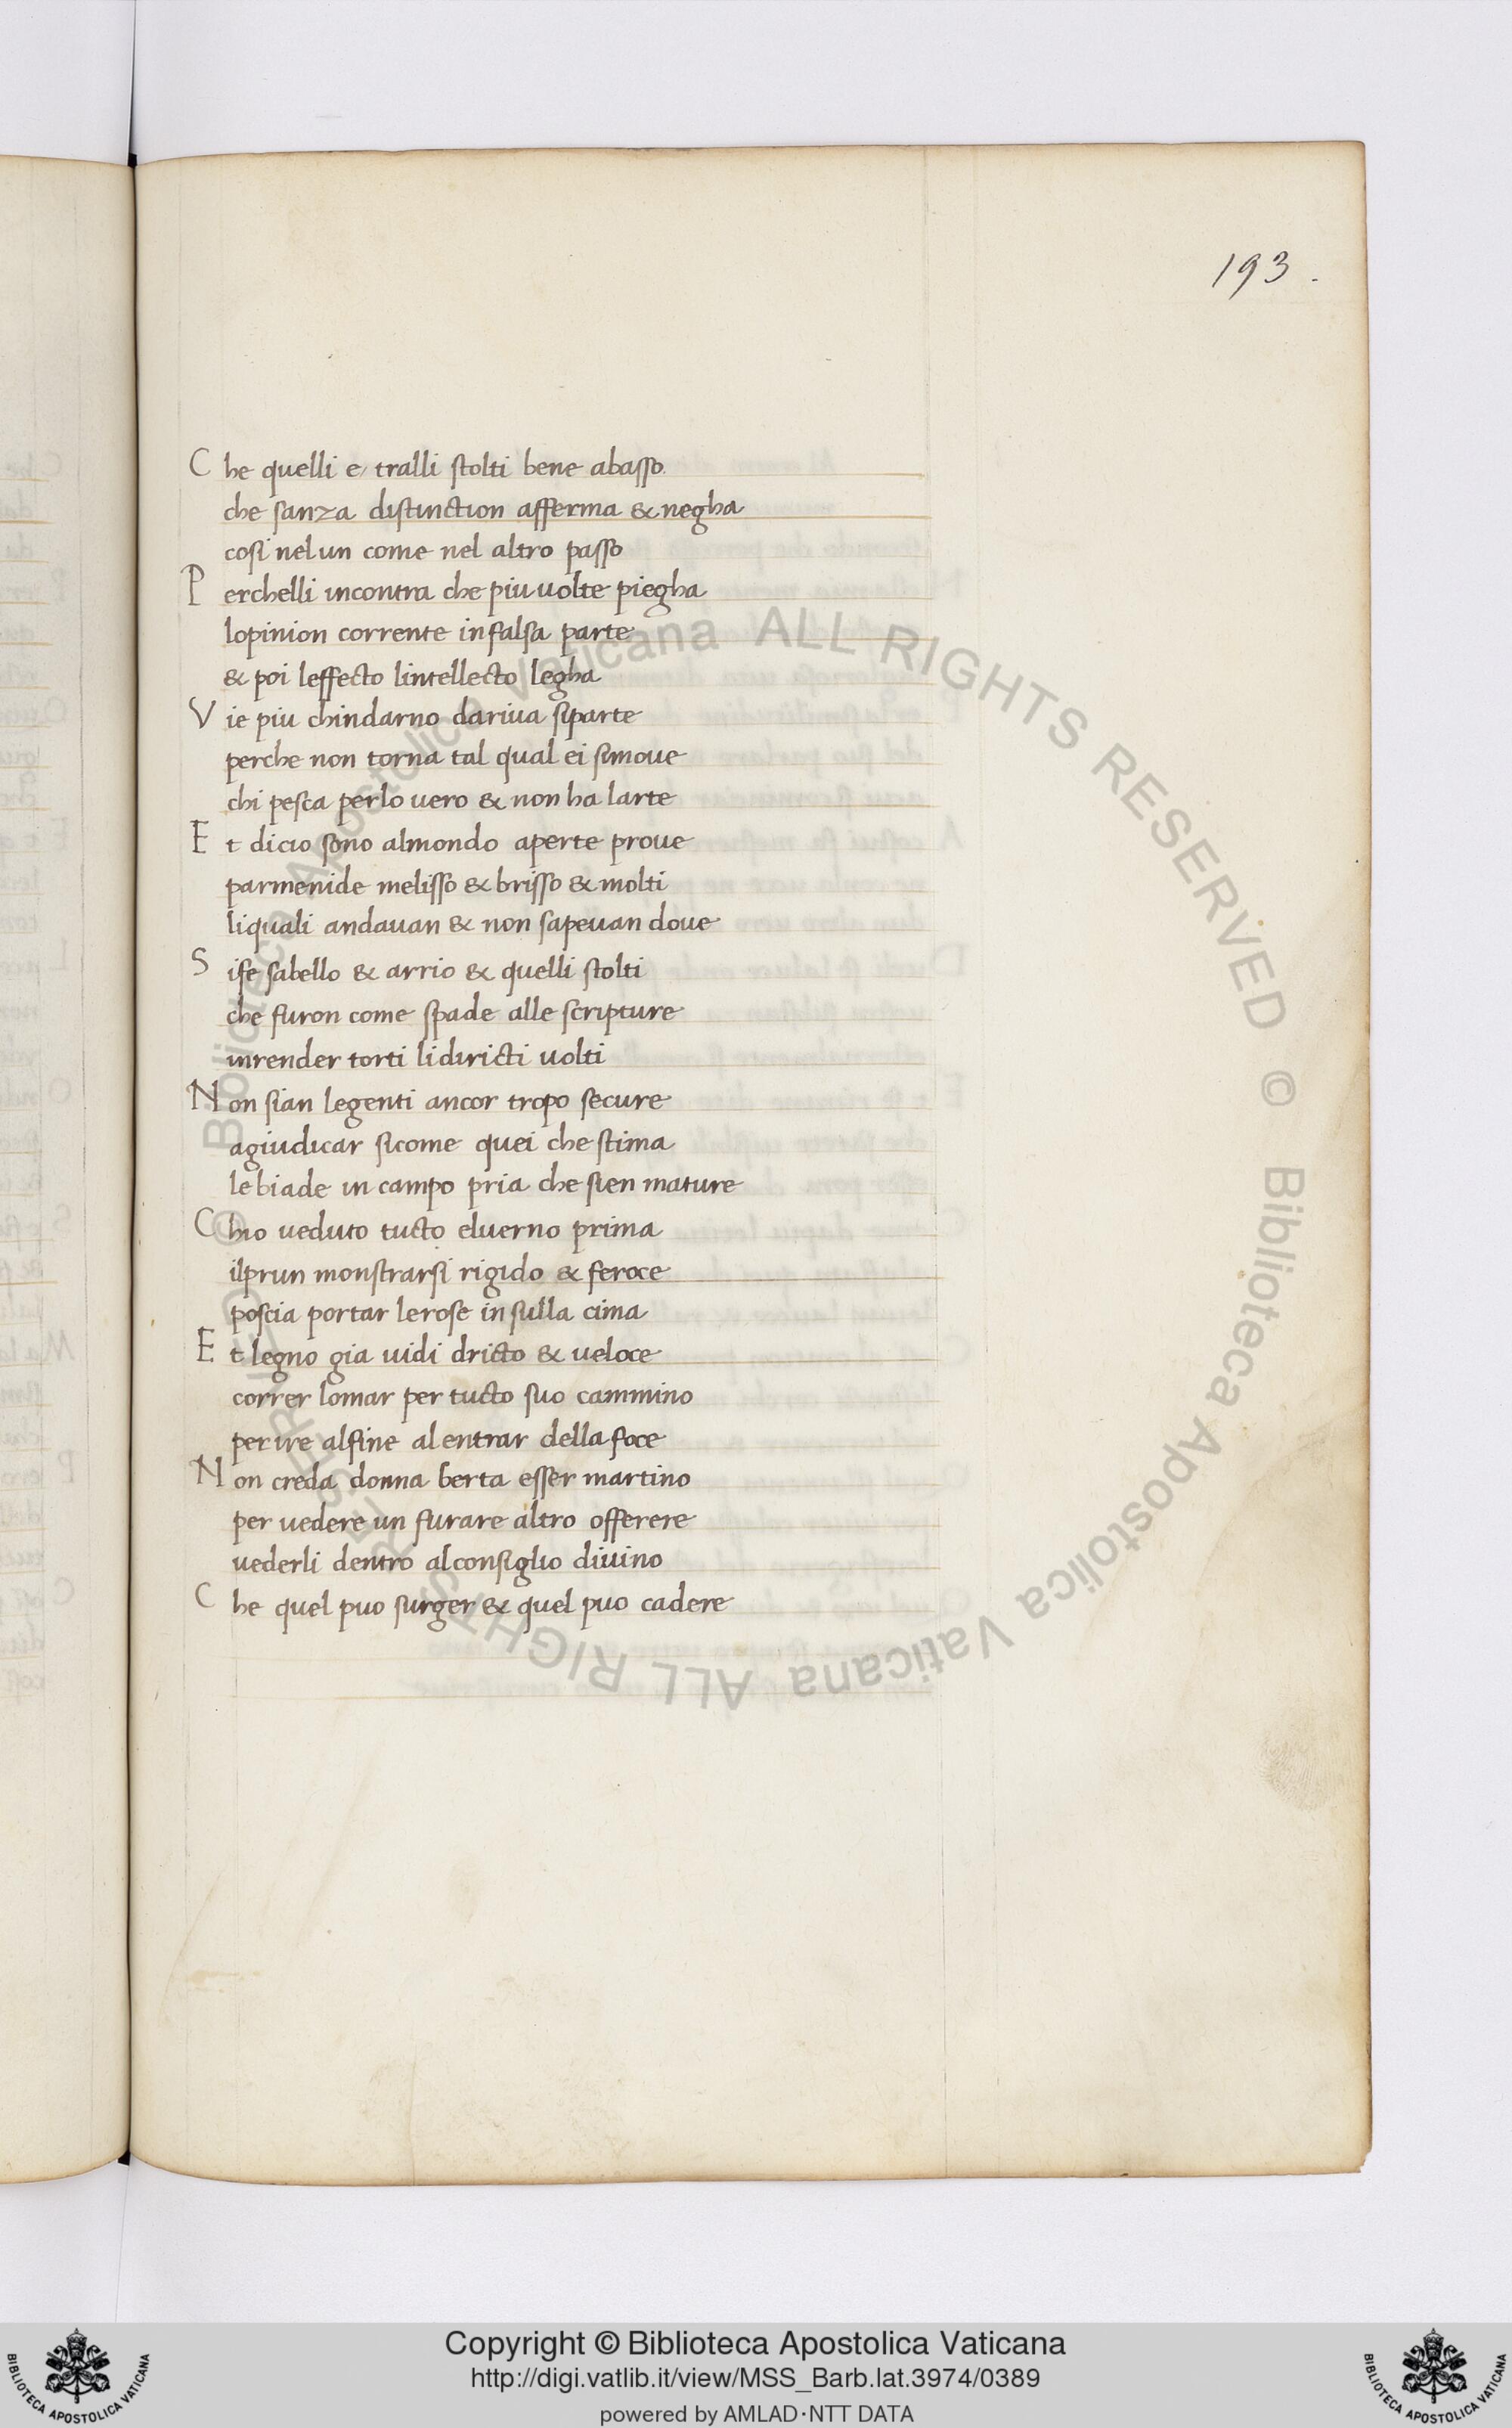 193.
Che quelli e tralli stolti bene abasso
che sanza distinction afferma & negha
cosi nelun come nel altro passo
Perchelli incontra che piu uolte piegha
lopinion corrente infalsa parte
& poi leffecto lintellecto legha
Vie piu chindarno dariua siparte
perche non torna tal qual ei simoue
chi pesca perlo uero & non ha larte
Et dicio sono almondo aperte proue
parmenide melisso & brisso & molti
liquali andauan & non sapeuan doue
Sife sabello & arrio & quelli stolti
che furon come spade alle scripture
inrender torti lidiricti uolti
Non sian legenti ancor tropo secure
agiudicar sicome quei che stima
lebiade in campo pria che sien mature
Chio ueduto tucto eluerno prima
ilprun monstrarsi rigido & feroce
poscia portar lerose insulla cima
Et legno gia uidi dricto & ueloce
correr lomar per tucto suo cammino
perire alfine alentrar della foce
Non creda donna berta esser martino
per uedere un furare altro offerere
uederli dentro alconsiglio diuino
Che quel puo surger & quel puo cadere
© Biblioteca Apostolica Vaticana ALL RIGHTS RESERVED © Biblioteca Apostolica Vaticana ALL RIGHTS RESERVED
BIBLIOTECA APOSTOLICA VATICANA
Copyright © Biblioteca Apostolica Vaticana
http://digi.vatlib.it/view/MSS_Barb.lat.3974/0389
powered by AMLAD·NTT DATA
BIBLIOTECA APOSTOLICA VATICANA